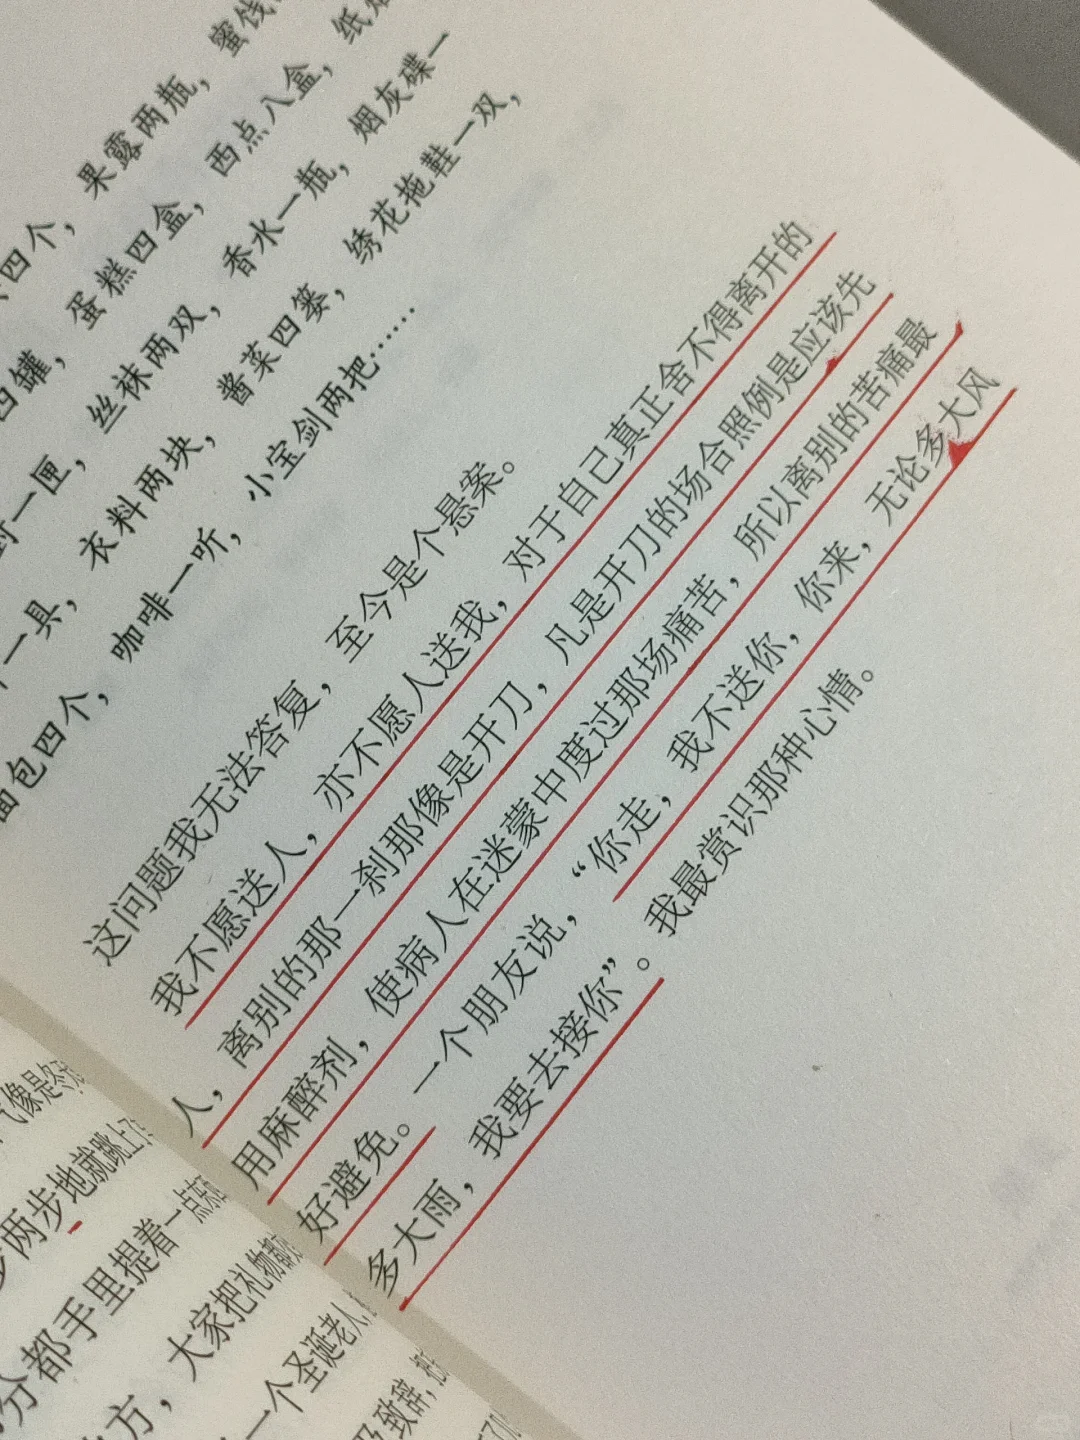 果露两瓶，蜜饯
四个，
西点八盒，纸烟
四罐，蛋糕四盒，
烟灰碟一
丝袜两双，香水一瓶，
一匣，
绣花拖鞋一双，
一具，衣料两块，酱菜四篓，
面包四个，咖啡一听，小宝剑两把……
这问题我无法答复，至今是个悬案。
我不愿送人，亦不愿人送我，对于自己真正舍不得离开的
人，离别的那一刹那像是开刀，凡是开刀的场合照例是应该先
用麻醉剂，使病人在迷蒙中度过那场痛苦，所以离别的苦痛最
好避免。一个朋友说，“你走，我不送你，你来，无论多大风
多大雨，我要去接你”。我最赏识那种心情。
像是冬
两步地就跳上
都手里提着一点东西
方，大家把礼物都
一个圣诞老人
致辞，把